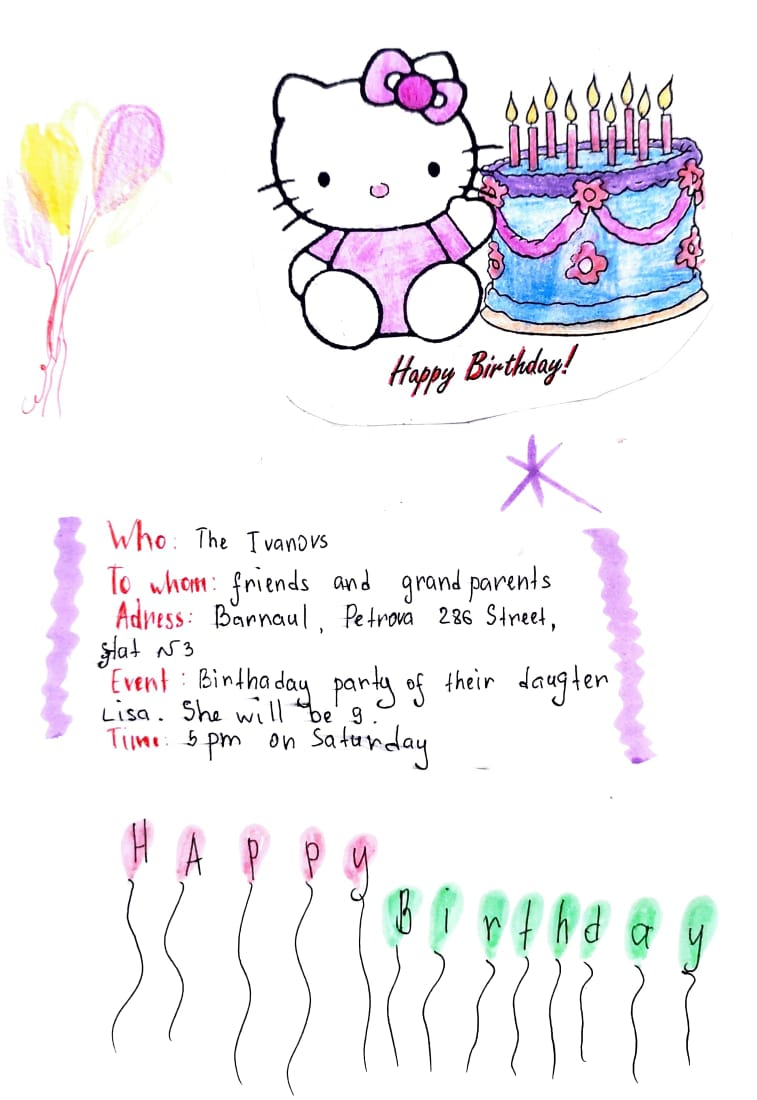 Happy Birthday!
Who: The Ivanovs
To whom: friends and grandparents
Adress: Barnaul, Petrova 286 Street,
flat N3
Event: Birthaday party of their daugter
Lisa. She will be 9.
Time: 5 pm on Saturday
HAppy
Birthday